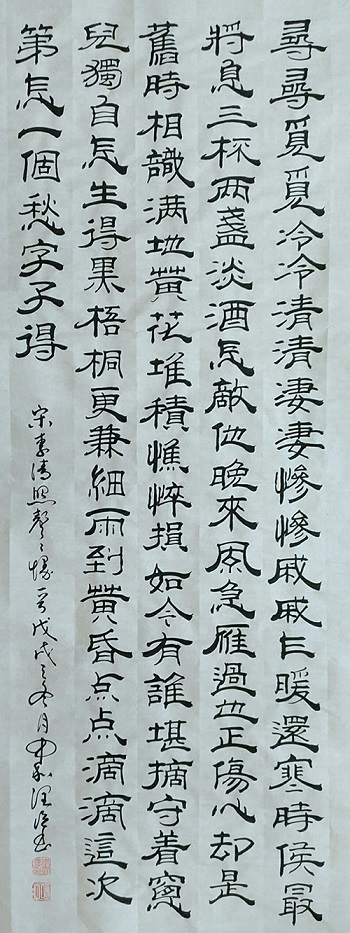 尋尋覓覓冷冷清清淒淒慘慘戚戚乍暖還寒時侯最
將息三杯两盞淡酒怎敵他晚來風急雁過也正傷心却是
舊時相識满地黄花堆積憔悴損如今有誰堪摘守着窓
兒獨自怎生得黑梧桐更兼細雨到黄昏点点滴滴這次
第怎一個愁字了得
宋李清照聲〻慢一首戊戌之冬月